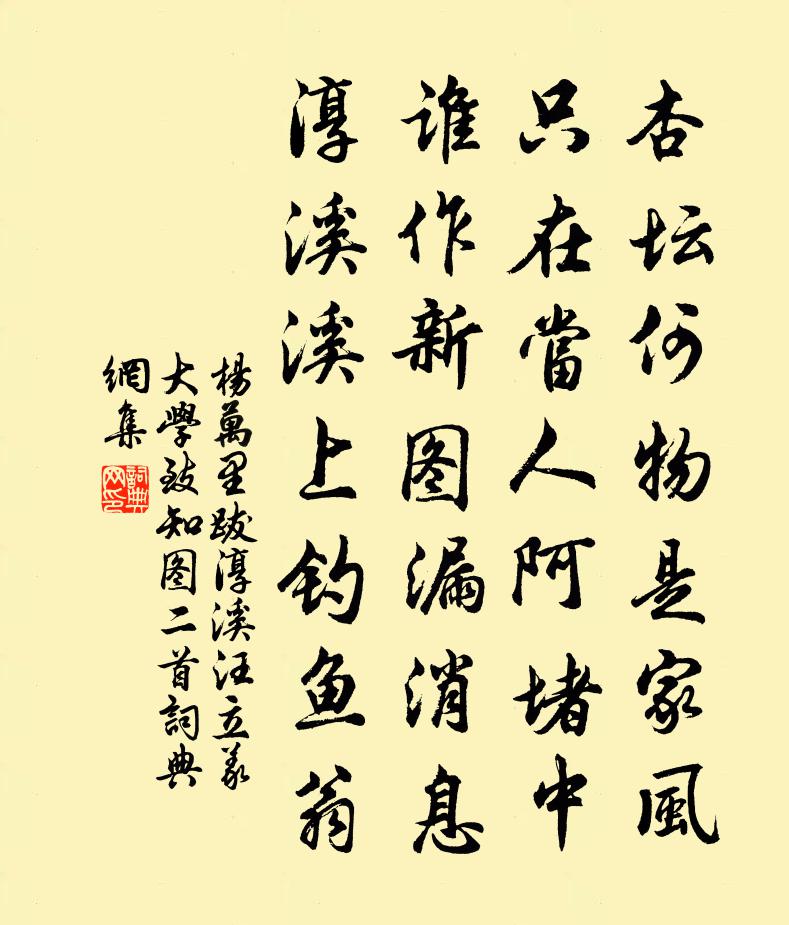 杏坛何物是家風
只在當人阿堵中
谁作新图漏消息
淳溪溪上钓鱼翁
楊萬里跋淳溪汪立义
大學致知图二首詞典
網集
詞典網印